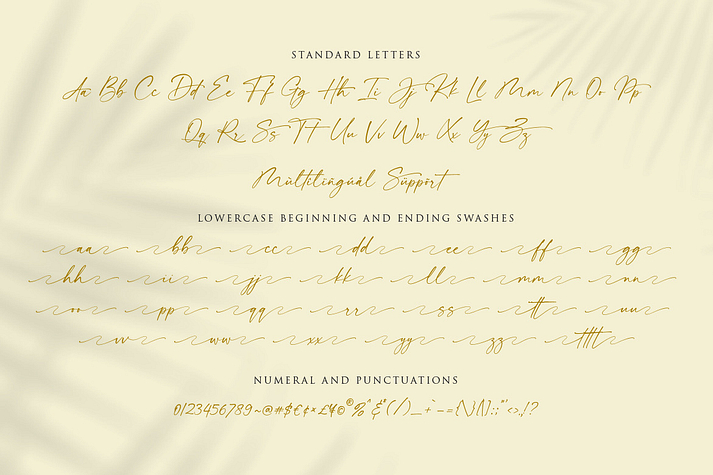 STANDARD LETTERS
Aa Bb Cc Dd Ee Ff Gg Hh Ii Jj Kk Ll Mm Nn Oo Pp
Qq Rr Ss Tt Uu Vv Ww Xx Yy Zz
Mùltilingúàl Sùppört
LOWERCASE BEGINNING AND ENDING SWASHES
aa bb cc dd ee ff gg
hh ii jj kk ll mm nn
oo pp qq rr ss tt uu
vv ww xx yy zz tttt
NUMERAL AND PUNCTUATIONS
0123456789~@#$€¢×£¥©®%^&*(/)_+-={\}[]:;"'<>,.!?